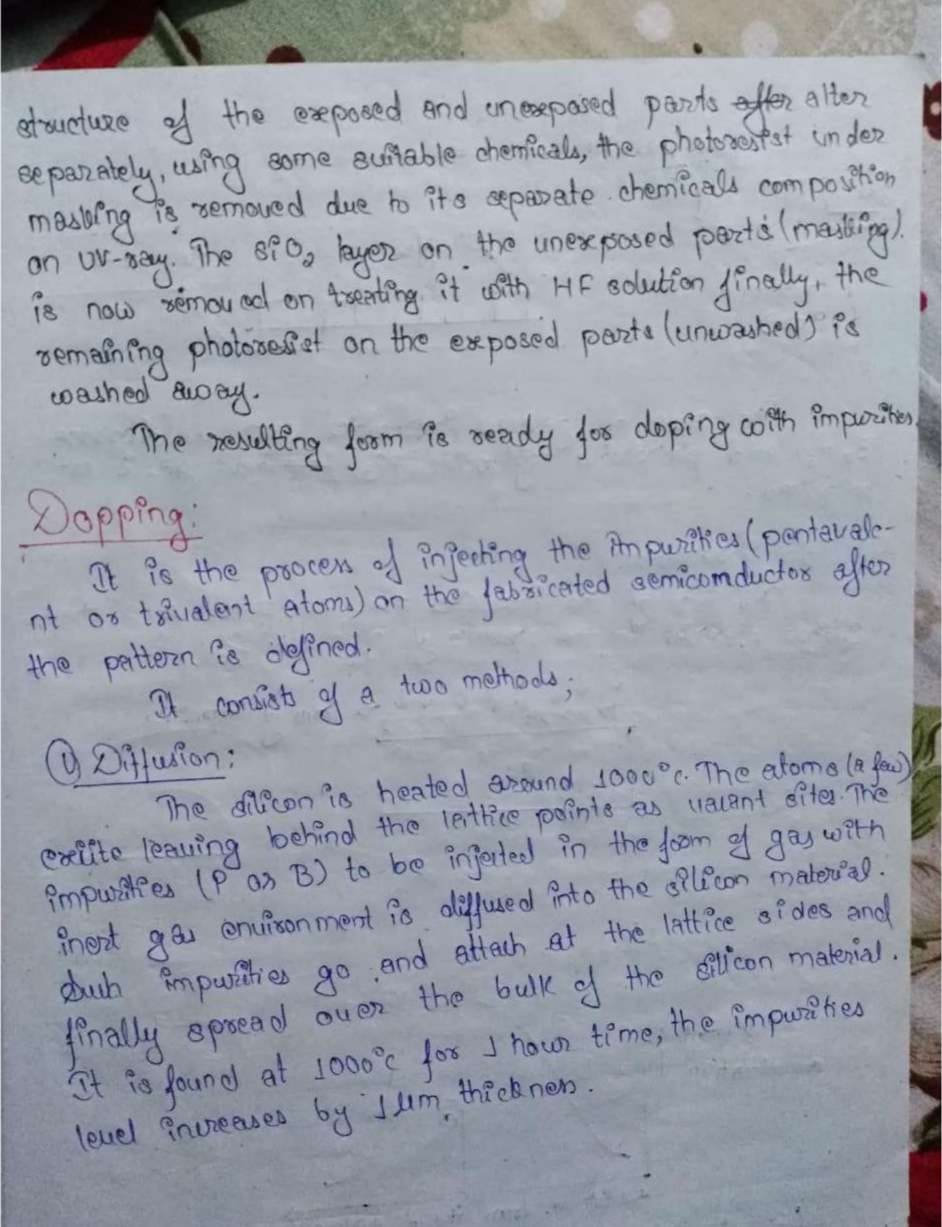 structure of the exposed and unexposed parts after alter
separately, using some suitable chemicals, the photoresist under
masking is removed due to its separate chemicals composition
on UV-ray. The SiO2 layer on the unexposed parts (masking).
is now removed on treating it with HF solution finally, the
remaining photoresist on the exposed parts (unwashed) is
washed away.
The resulting form is ready for doping with impurities
Dopping:
It is the process of injecting the impurities (pentavale-
nt or trivalent atoms) on the fabricated semicomductor after
the pattern is defined.
It consists of a two methods;
① Diffusion:
The silicon is heated around 1000°c. The atoms (a few)
excite leaving behind the lattice points as vacant sites. The
impurities (P or B) to be injected in the form of gas with
inert gas environment is diffused into the silicon material.
Such impurities go and attach at the lattice sides and
finally spread over the bulk of the silicon material.
It is found at 1000°c for 1 hour time, the impurities
level increases by 1 μm thickness.